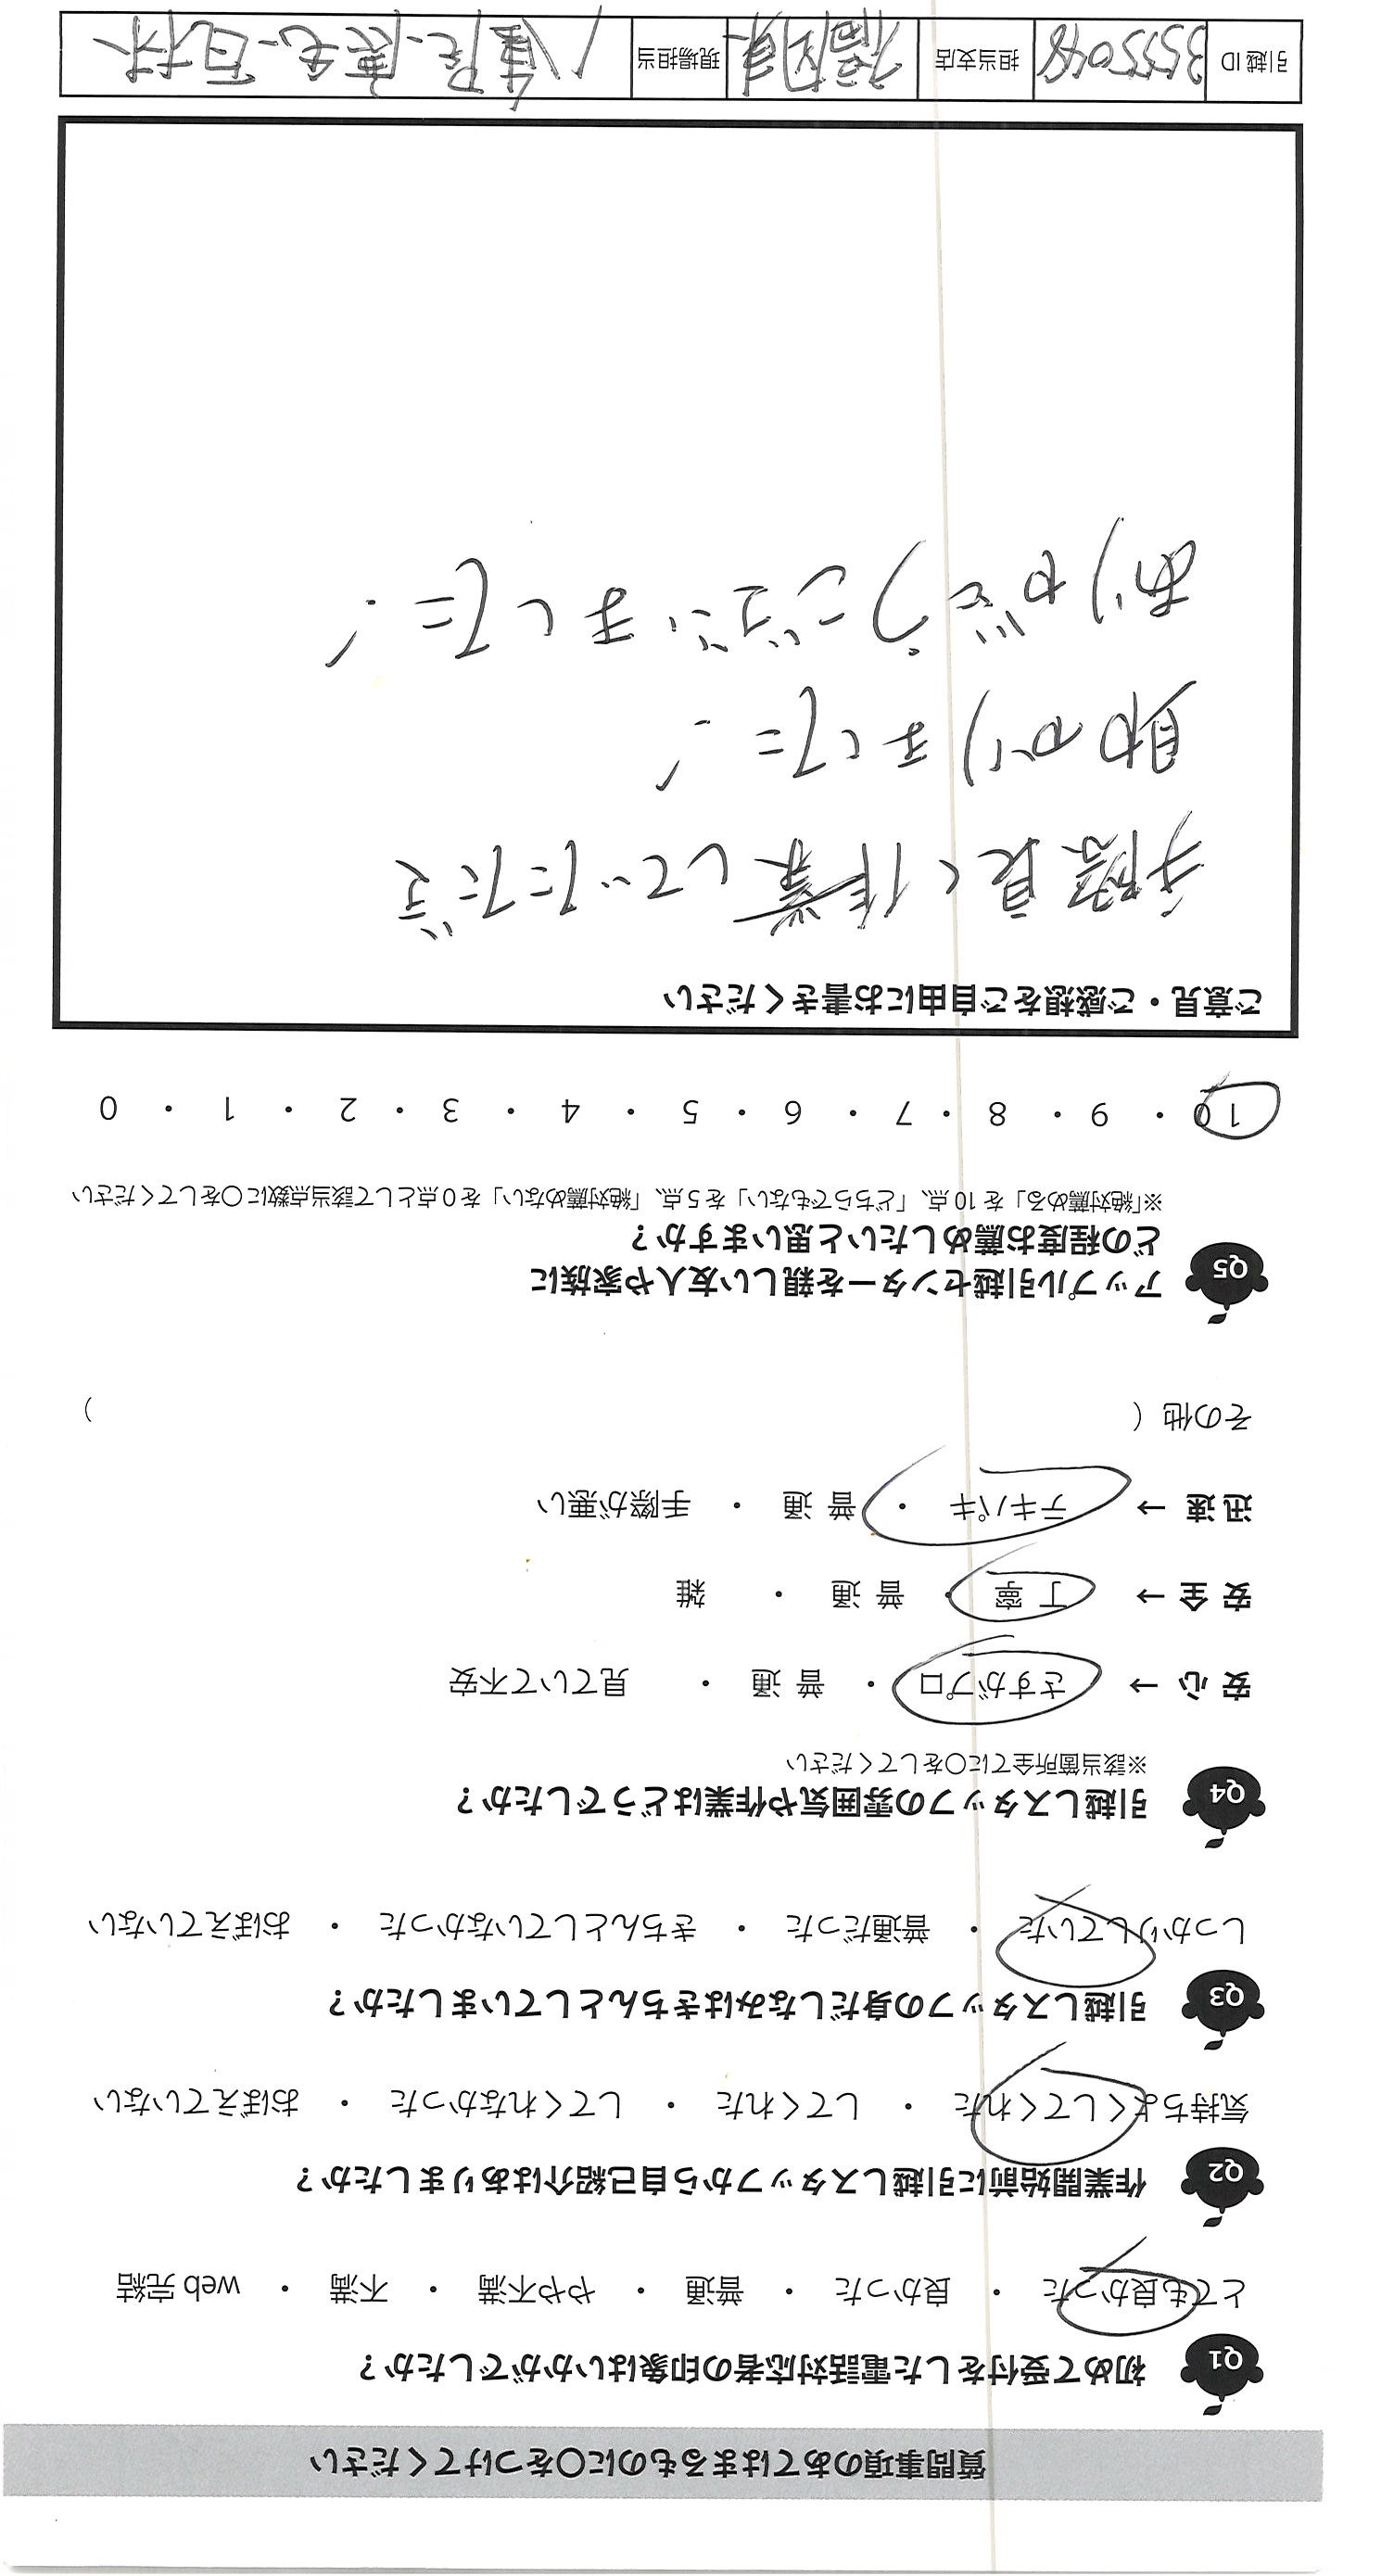 質問事項のあてはまるものに〇をつけてください
Q1 初めて受付をした電話対応者の印象はいかがでしたか？
とても良かった ・ 良かった ・ 普通 ・ やや不満 ・ 不満 ・ web 完結
Q2 作業開始前に引越しスタッフから自己紹介はありましたか？
気持ちよくしてくれた ・ してくれた ・ してくれなかった ・ おぼえていない
Q3 引越しスタッフの身だしなみはきちんとしていましたか？
しっかりしていた ・ 普通だった ・ きちんとしていなかった ・ おぼえていない
Q4 引越しスタッフの雰囲気や作業はどうでしたか？
※該当箇所全てに〇をしてください
安 心 → さすがプロ ・ 普 通 ・ 見ていて不安
安 全 → 丁 寧 ・ 普 通 ・ 雑
迅 速 → テキパキ ・ 普 通 ・ 手際が悪い
その他（ ）
Q5 アップル引越センターを親しい友人や家族に
どの程度お薦めしたいと思いますか？
※「絶対薦める」を 10 点、「どちらでもない」を 5 点、「絶対薦めない」を 0 点として該当点数に〇をしてください
10 ・ 9 ・ 8 ・ 7 ・ 6 ・ 5 ・ 4 ・ 3 ・ 2 ・ 1 ・ 0
ご意見・ご感想をご自由にお書きください
手際良く作業していただき
助かりました！
ありがとうございました！
引越 ID 3555048 担当支店 福岡東 現場担当